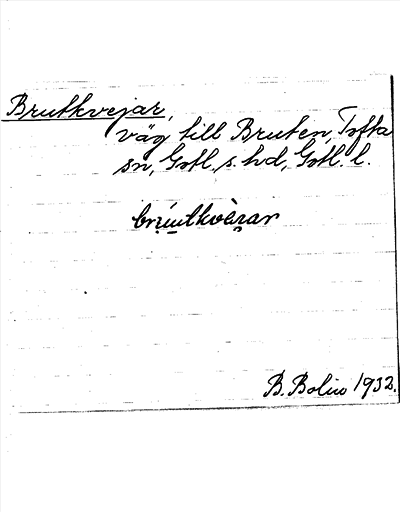 Brutkvejar,
väg till Bruten, Tofta
sn, Gotl. s. hd, Gotl. l.
B. Bolin 1932.